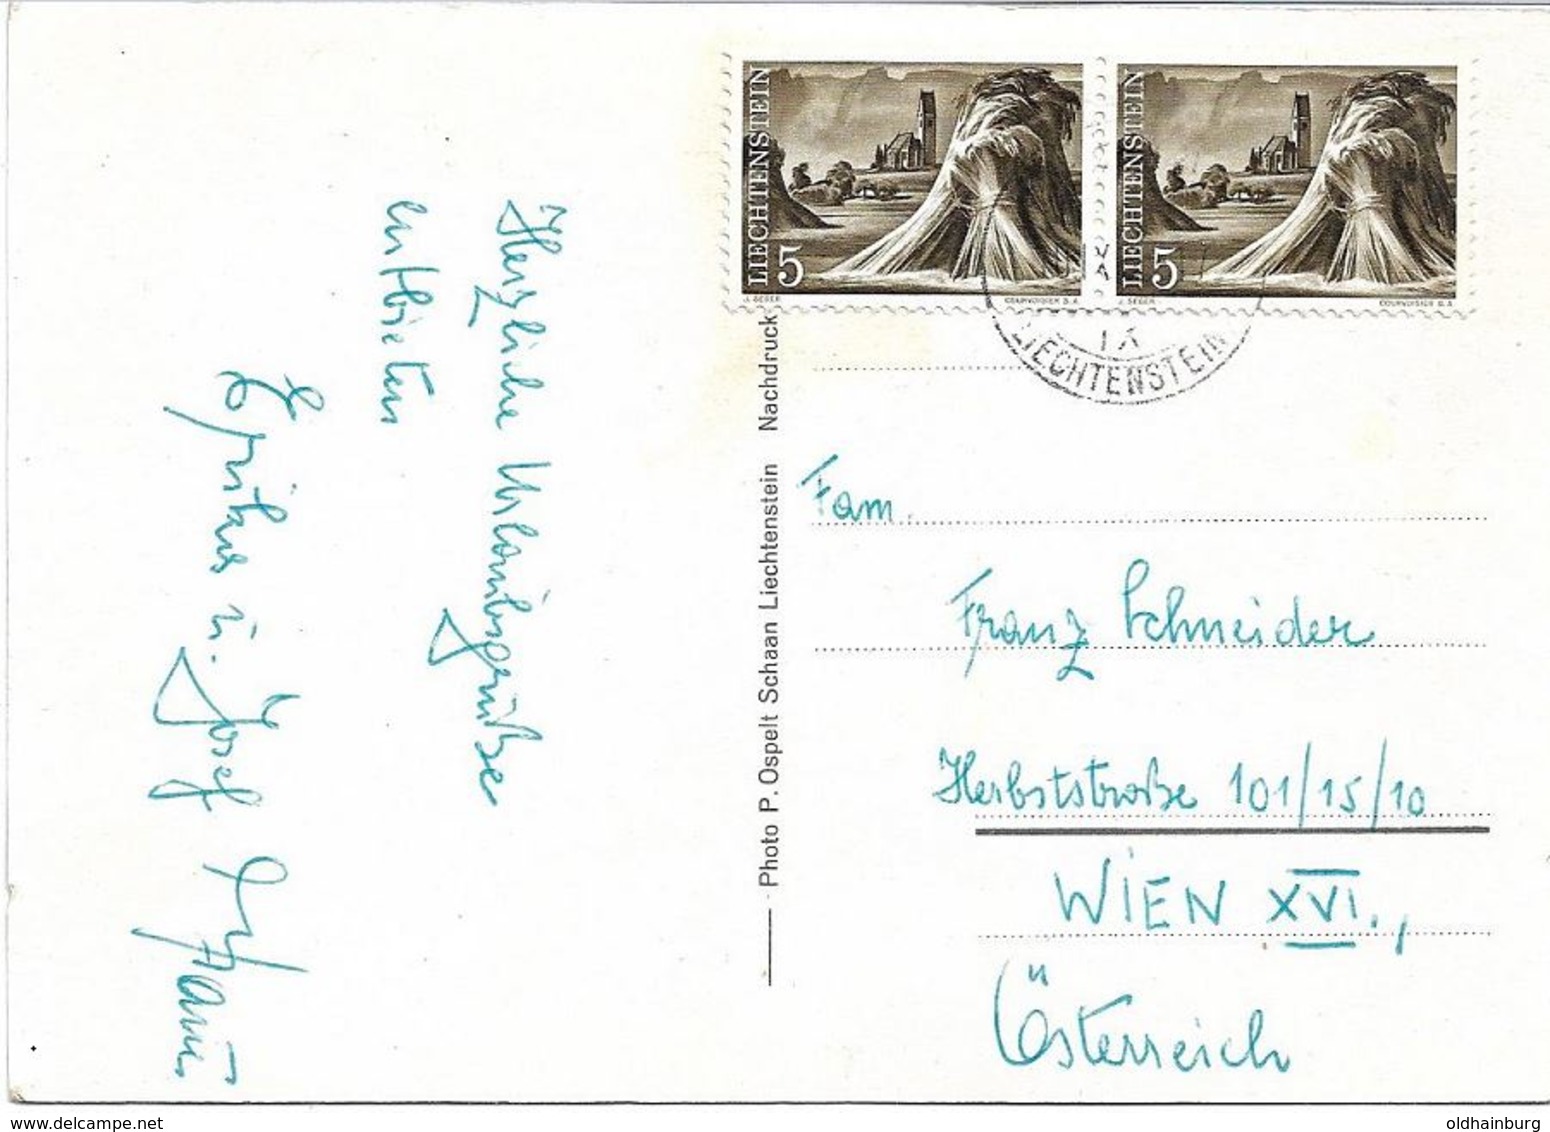 Herzliche Urlaubsgrüße
entbieten
u. Josef
LIECHTENSTEIN
5
J. SEGER
COURVOISIER S.A.
LIECHTENSTEIN
5
J. SEGER
COURVOISIER S.A.
LIECHTENSTEIN
Photo P. Ospelt Schaan Liechtenstein Nachdruck
Fam.
Franz Schneider
Herbststraße 101/15/10
WIEN XVI.,
Österreich
oldhainburg